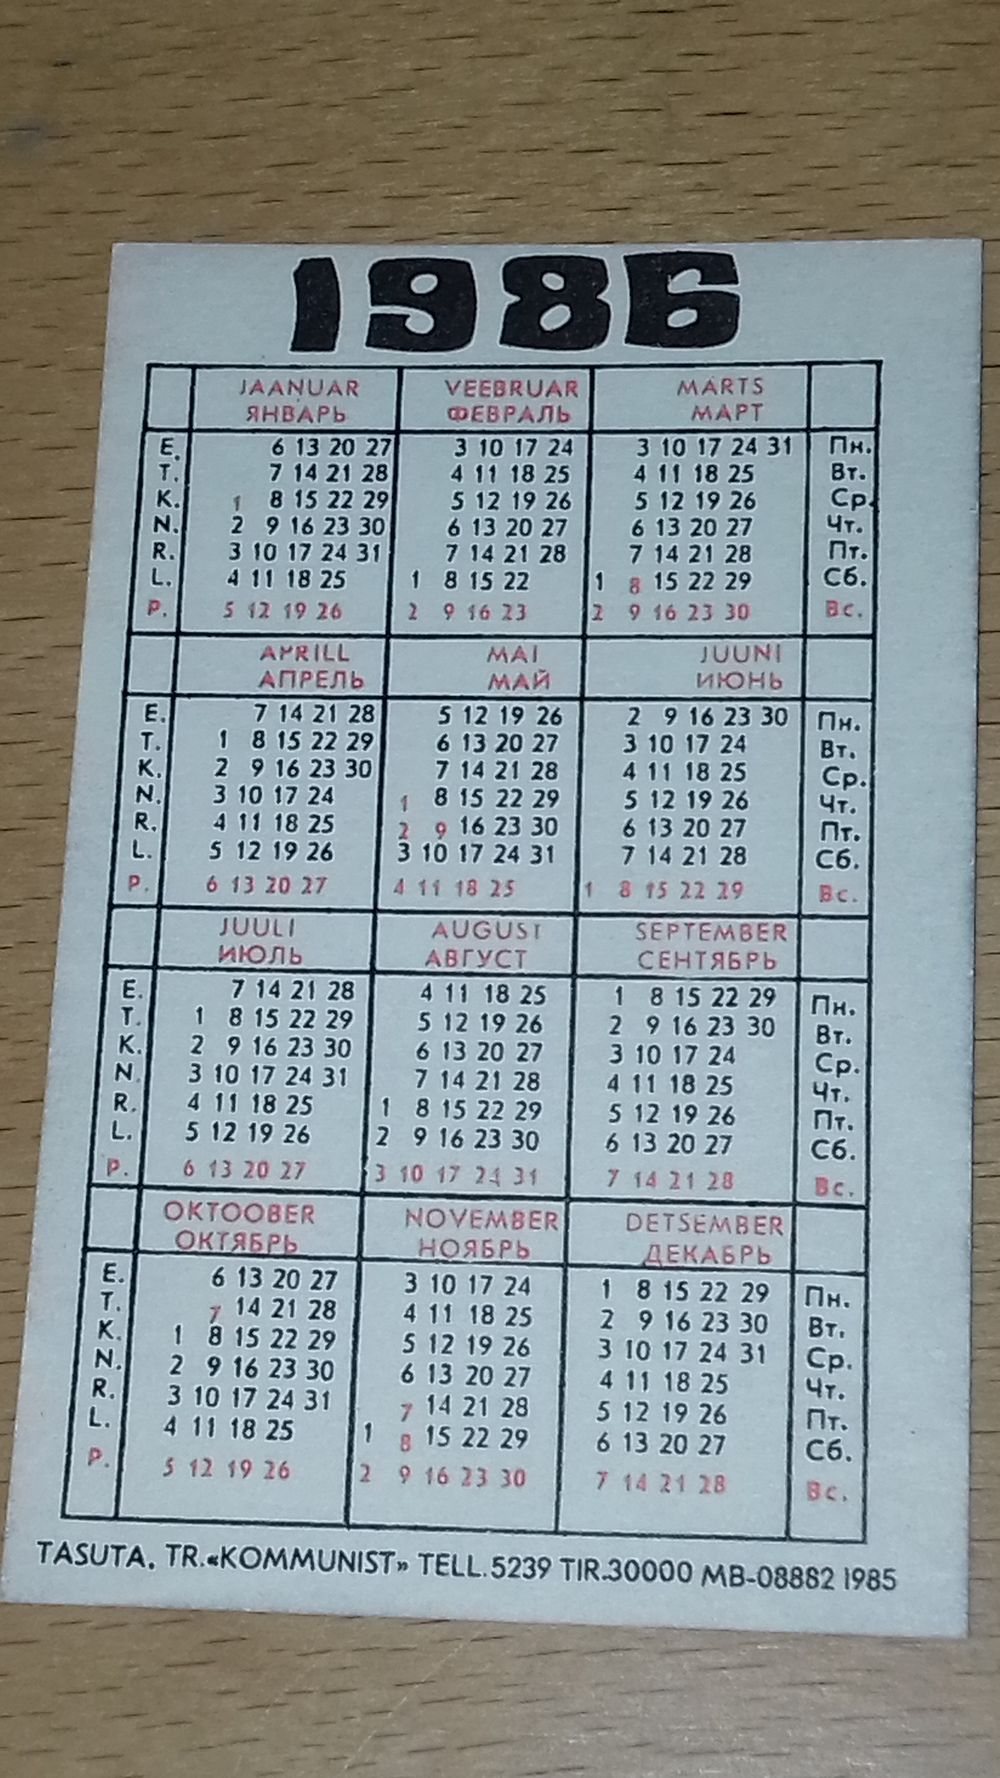 1986
JAANUAR VEEBRUAR MÄRTS
ЯНВАРЬ ФЕВРАЛЬ МАРТ
E. 6 13 20 27 3 10 17 24 3 10 17 24 31 Пн.
T. 7 14 21 28 4 11 18 25 4 11 18 25 Вт.
K. 1 8 15 22 29 5 12 19 26 5 12 19 26 Ср.
N. 2 9 16 23 30 6 13 20 27 6 13 20 27 Чт.
R. 3 10 17 24 31 7 14 21 28 7 14 21 28 Пт.
L. 4 11 18 25 1 8 15 22 1 8 15 22 29 Сб.
P. 5 12 19 26 2 9 16 23 2 9 16 23 30 Вс.
APRILL MAI JUUNI
АПРЕЛЬ МАЙ ИЮНЬ
E. 7 14 21 28 5 12 19 26 2 9 16 23 30 Пн.
T. 1 8 15 22 29 6 13 20 27 3 10 17 24 Вт.
K. 2 9 16 23 30 7 14 21 28 4 11 18 25 Ср.
N. 3 10 17 24 1 8 15 22 29 5 12 19 26 Чт.
R. 4 11 18 25 2 9 16 23 30 6 13 20 27 Пт.
L. 5 12 19 26 3 10 17 24 31 7 14 21 28 Сб.
P. 6 13 20 27 4 11 18 25 1 8 15 22 29 Вс.
JUULI AUGUST SEPTEMBER
ИЮЛЬ АВГУСТ СЕНТЯБРЬ
E. 7 14 21 28 4 11 18 25 1 8 15 22 29 Пн.
T. 1 8 15 22 29 5 12 19 26 2 9 16 23 30 Вт.
K. 2 9 16 23 30 6 13 20 27 3 10 17 24 Ср.
N. 3 10 17 24 31 7 14 21 28 4 11 18 25 Чт.
R. 4 11 18 25 1 8 15 22 29 5 12 19 26 Пт.
L. 5 12 19 26 2 9 16 23 30 6 13 20 27 Сб.
P. 6 13 20 27 3 10 17 24 31 7 14 21 28 Вс.
OKTOOBER NOVEMBER DETSEMBER
ОКТЯБРЬ НОЯБРЬ ДЕКАБРЬ
E. 6 13 20 27 3 10 17 24 1 8 15 22 29 Пн.
T. 7 14 21 28 4 11 18 25 2 9 16 23 30 Вт.
K. 1 8 15 22 29 5 12 19 26 3 10 17 24 31 Ср.
N. 2 9 16 23 30 6 13 20 27 4 11 18 25 Чт.
R. 3 10 17 24 31 7 14 21 28 5 12 19 26 Пт.
L. 4 11 18 25 1 8 15 22 29 6 13 20 27 Сб.
P. 5 12 19 26 2 9 16 23 30 7 14 21 28 Вс.
TASUTA. TR.«KOMMUNIST» TELL.5239 TIR.30000 MB-08882 1985